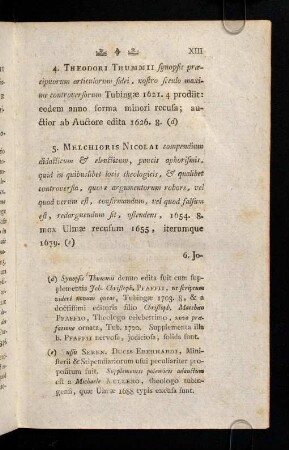 XIII
4. THEODORI THUMMII synopsis præ-
cipuorum articulorum fidei, nostro seculo maxi-
me controversorum Tubingæ 1621. 4 prodiit:
eodem anno forma minori recusa; au-
ctior ab Auctore edita 1626. 8. (d)
5. MELCHIORIS NICOLAI compendium
didacticum & elencticum, paucis aphorismis,
quid in quibuslibet locis theologicis, & qualibet
controversia, quove argumentorum robore, vel
quod verum est, confirmandum, vel quod falsum
est, redarguendum sit, ostendens, 1654. 8.
mox Ulmæ recusum 1655, iterumque
1679. (e)
6. Jo-
(d) Synopsis Thummii denuo edita fuit cum sup-
plementis Joh. Christoph. PFAFFII, ut scriptum
videri novum queat, Tubingæ 1703. 8, & a
doctissimi editoris filio Christoph. Matthæo
PFAFFIO, Theologo celeberrimo, nova præ-
fatione ornata, Tub. 1720. Supplementa illa
b. PFAFFII nervosis, judiciosis, solida sunt.
(e) usui SEREN. DUCIS EBERHARDI, Mini-
sterii & Stipendiariorum usui peculiariter pro-
positum fuit. Supplementis polemicis adauctum
est a Michaele MULLERO, theologo tubin-
gensi, quæ Ulmæ 1688 typis excusa sunt.